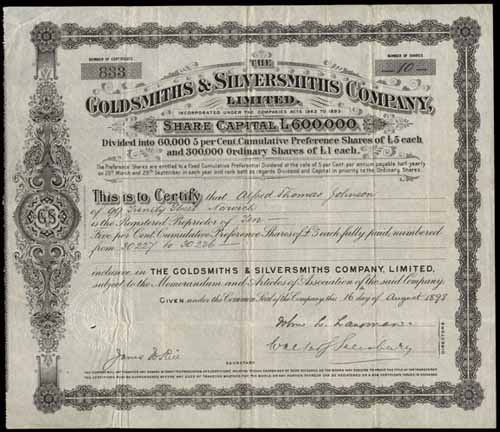 NUMBER OF CERTIFICATE
833
NUMBER OF SHARES
10
THE
GOLDSMITHS & SILVERSMITHS COMPANY,
LIMITED.
INCORPORATED UNDER THE COMPANIES ACTS 1862 TO 1893.
SHARE CAPITAL £600000.
Divided into 60,000 5 per Cent. Cumulative Preference Shares of £5 each
and 300,000 Ordinary Shares of £1 each.
The Preference Shares are entitled to a fixed Cumulative Preferential Dividend at the rate of 5 per Cent per annum payable half-yearly
on 25th March and 29th September in each year and rank both as regards Dividend and Capital in priority to the Ordinary Shares.
This is to Certify that Alfred Thomas Johnson
of 99 Trinity Street Norwich
is the Registered Proprietor of Ten
Five per Cent. Cumulative Preference Shares of £5 each fully paid, numbered
from 30227 to 30236
inclusive in THE GOLDSMITHS & SILVERSMITHS COMPANY, LIMITED,
subject to the Memorandum and Articles of Association of the said Company.
GIVEN under the Common Seal of the Company this 16 day of August 1898
G&S
DIRECTORS
SECRETARY